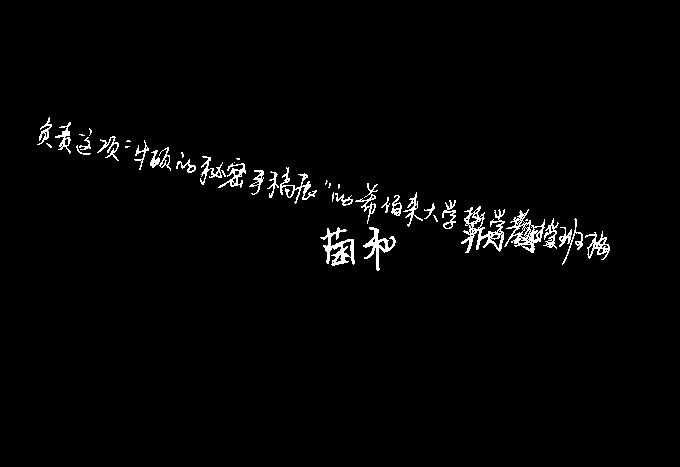 负责这项“牛顿的秘密手稿展”的希伯来大学教授班梅
茵和